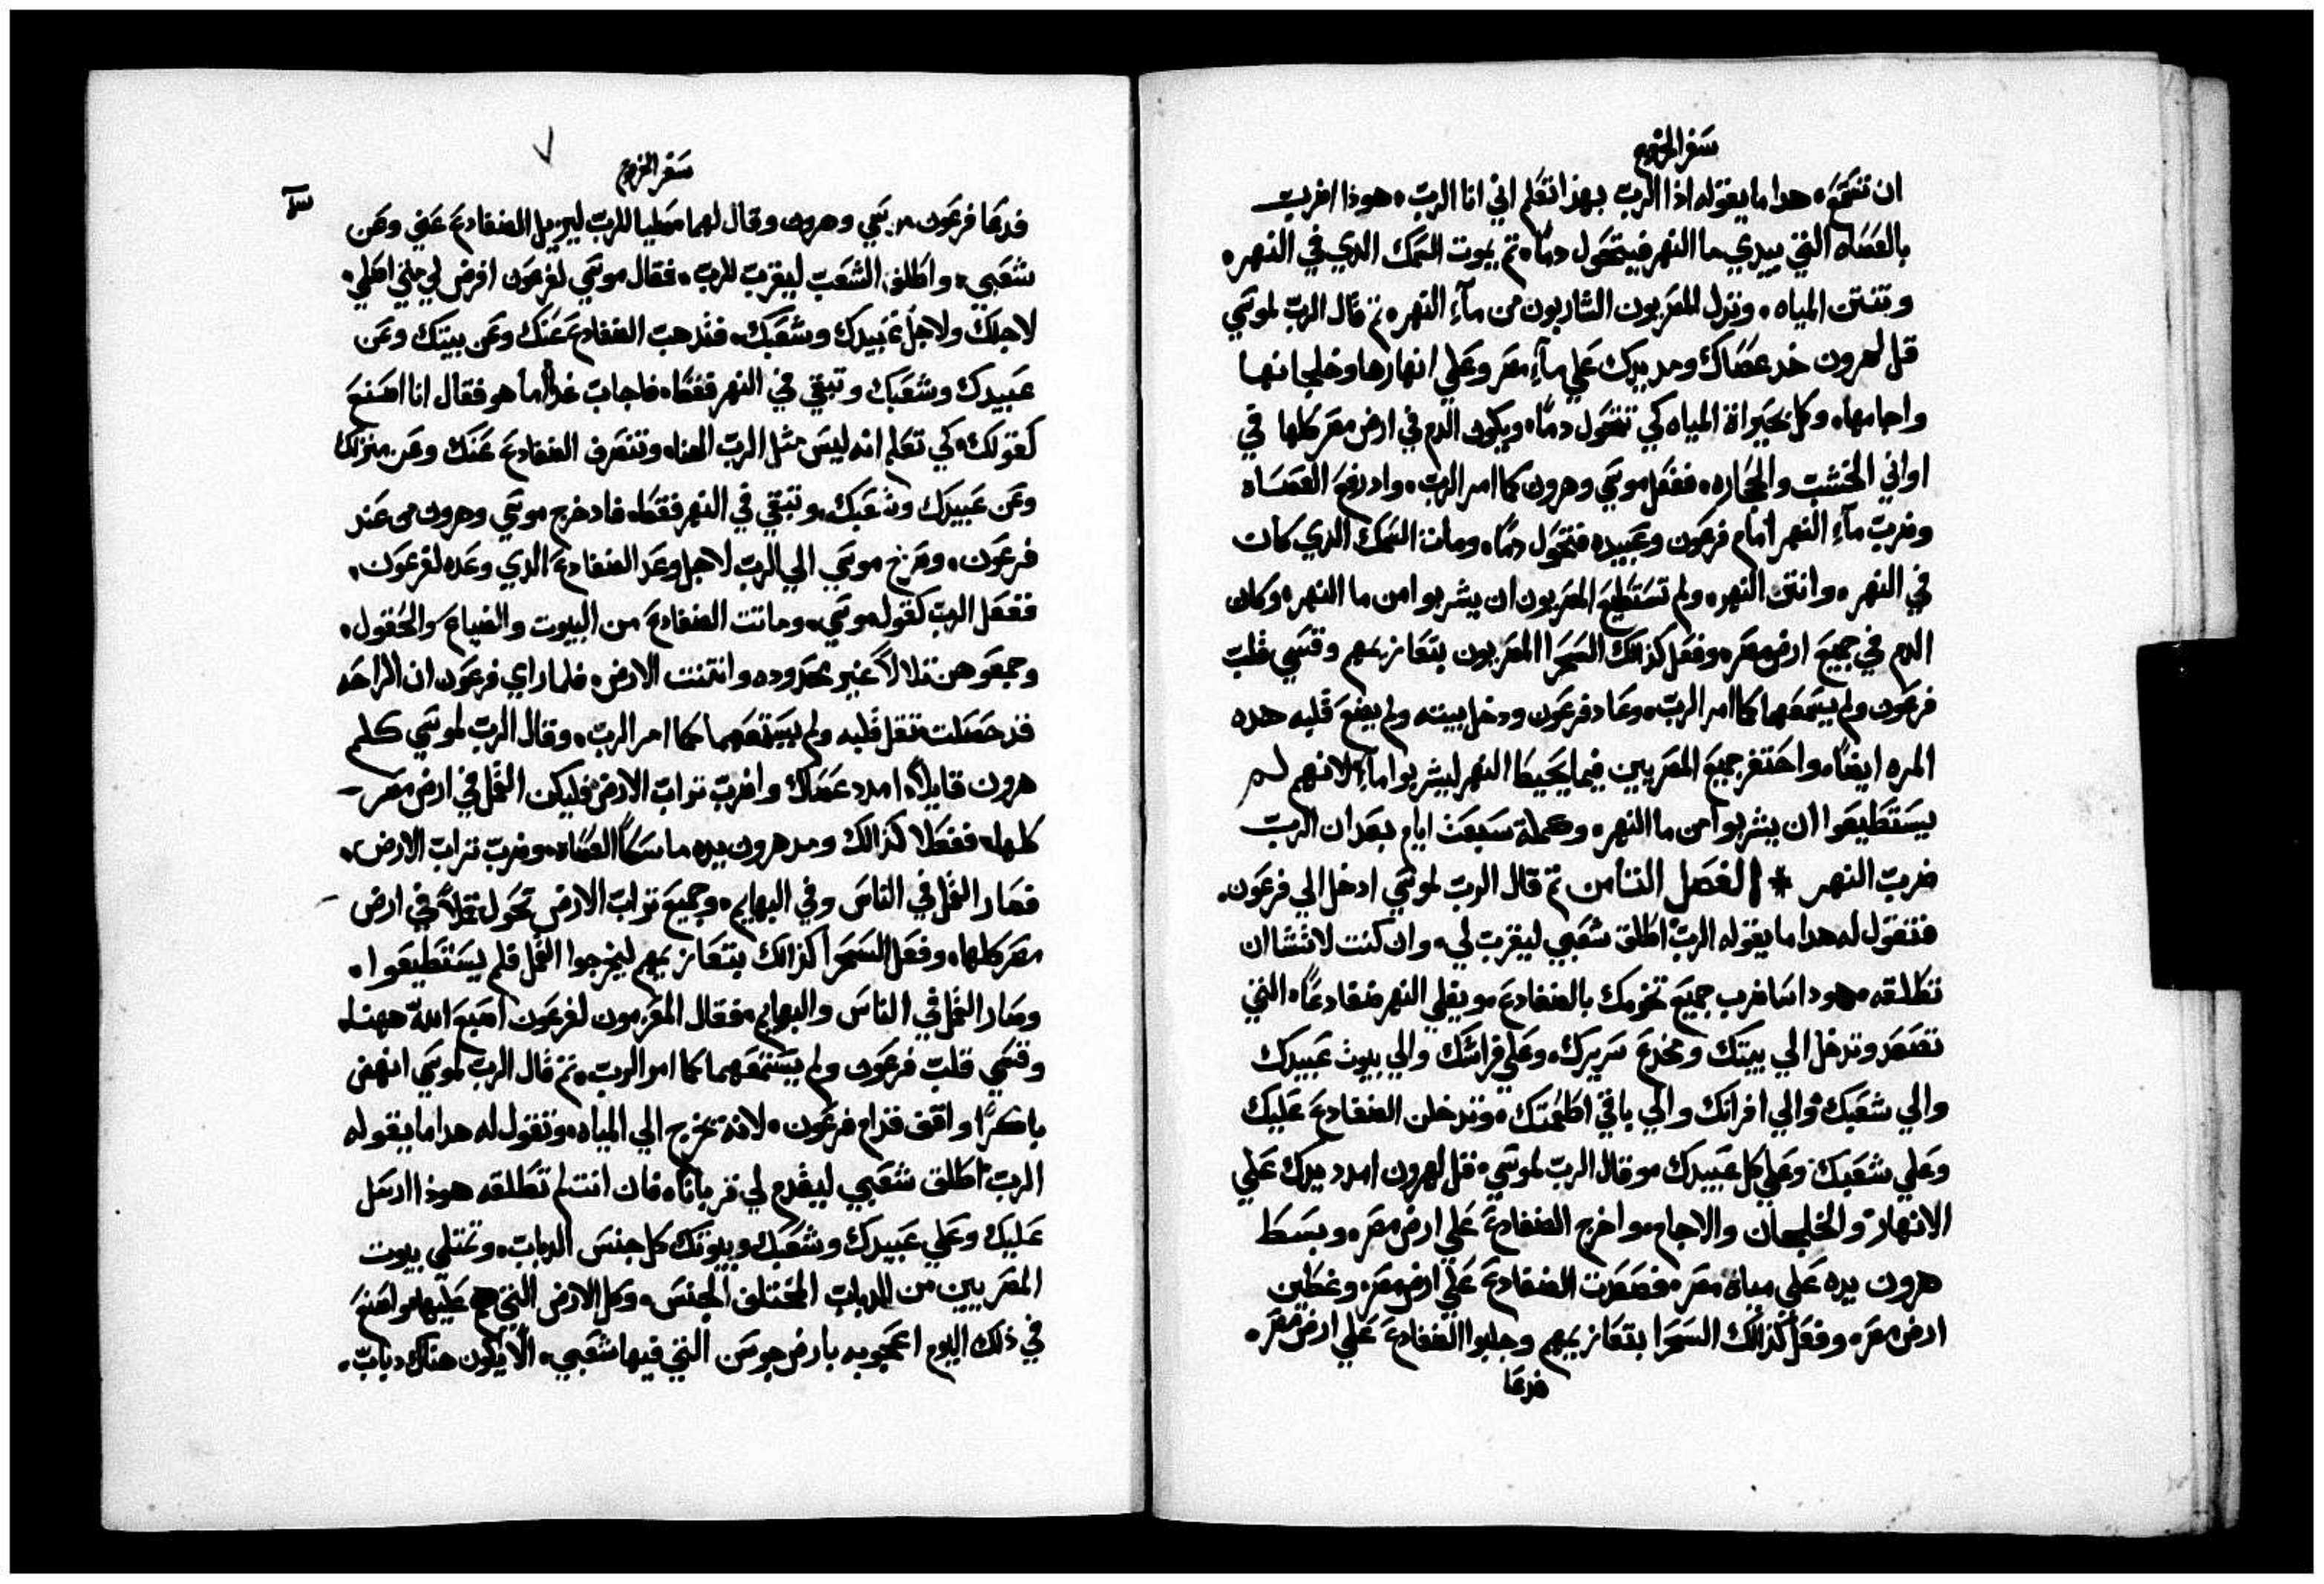 سفر الخروج
ان تسمع، هدا ما يقوله ادا الرب بهذا تعلم اني انا الرب، هوذا اضرب
بالعصاه التي بيدي ما النهر فيتحول دمًا، تم يموت السمك الدي في النهر،
وتنتن المياه، وتدل المصريون الشاربون من مآء النهر، تم قال الرب لموسي
قل لهرون خد عصاك ومد يدك علي مآء مصر وعلي انهارها وخلجانها
واجامها، وكل بحيراة المياه كي تتحول دمًا، ويكون الدم في ارض مصر كلها في
اواني الخشب والحجاره، ففعل موسي وهرون كما امر الرب، واد رفع العصاه
وضرب مآء النهر امام فرعون وعبيده فتحول دمًا، ومات السمك الدي كان
في النهر، وانتن النهر، ولم تستطيع المصريون ان يشربوا من ما النهر، وكان
الدم في جميع ارض مصر، وفعل كذالك السحرا المصريون بتعازيمهم وقسي قلب
فرعون ولم يسمعهما كما امر الرب، وعاد فرعون ودخل بيته ولم يضع قلبه هده
المره ايضًا، واحتفر جميع المصريين فيما يحيط النهر ليشربوا مآء لانهم لم
يستطيعوا ان يشربوا من ما النهر، وكملة سبعة ايام بعد ان الرب
ضرب النهر * الفصل التامن تم قال الرب لموسي ادخل الي فرعون،
فتقول له هدا ما يقوله الرب اطلق شعبي ليقرب لي، وان كنت لا تشا ان
تطلقه، هودا انا ضرب جميع تخومك بالضفادع، ويغلي النهر ضفادعًا، التي
تصعد وتدخل الي بيتك ومخدع سريرك، وعلي فراشك والي بيوت عبيدك
والي شعبك والي افرانك والي باقي اطعمتك، وتدخلن الضفادع عليك
وعلي شعبك وعلي كل عبيدك، وقال الرب لموسي، قل لهرون امدد يدك علي
الانهار والخلجان والاجام، واخرج الضفادع علي ارض مصر، وبسط
هرون يده علي مياة مصر، فصعدت الضفادع علي ارض مصر، وغطين
ارض مصر، وفعل كذالك السحرا بتعازيمهم وجلبوا الضفادع علي ارض مصر،
فدعا
٧
سفر الخروج
فدعا فرعون موسي وهرون وقال لهما صليا للرب ليزيل الضفادع عني وعن
شعبي، واطلق الشعب ليقرب للرب، فقال موسي لفرعون افرض لي متي اصلي،
لاجلك ولاجل عبيدك وشعبك، فتدهب الضفادع عنك وعن بيتك وعن
عبيدك وشعبك وتبقي في النهر فقط، فاجاب غدًا ما هو فقال انا اصنع
كقولك، كي تعلم انه ليس مثل الرب الهنا، وتنصرف الضفادع عنك وعن منزلك
وعن عبيدك وشعبك، وتبقي في النهر فقط، فاد خرج موسي وهرون من عند
فرعون، وصرخ موسي الي الرب لاجل وعد الضفادع الدي وعده لفرعون،
ففعل الرب كقول موسي، وماتت الضفادع من البيوت والضياع والحقول،
وجمعوهن تلالاً غير محدوده وانتنت الارض، فلما راي فرعون ان الراحه
قد حصلت تقل قلبه ولم يستمعهما كما امر الرب، وقال الرب لموسي كلم
هرون قايلاً، امدد عصاك واضرب تراب الارض فليكن القمل في ارض مصر
كلها، ففعلا كذالك ومد هرون يده ماسكًا العصاه، وضرب تراب الارض،
فصار القمل في الناس وفي البهايم، وجميع تراب الارض تحول قملاً في ارض
مصر كلها، وفعل السحرا كذالك بتعازيمهم ليخرجوا القمل فلم يستطيعوا،
وصار القمل في الناس والبهايم، فقال المعزمون لفرعون اصبع الله ههنا،
وقسي قلب فرعون ولم يستمعهما كما امر الرب، تم قال الرب لموسي انهض
باكرًا واقف قدام فرعون، لانه يخرج الي المياه، وتقول له هدا ما يقوله
الرب اطلق شعبي ليقدم لي قربانًا، فان انت لم تطلقه هوذا ارسل
عليك وعلي عبيدك وشعبك وبيوتك كل جنس الدباب، وتمتلي بيوت
المصريين من الدباب المختلف الجنس، وكل الارض التي هم عليها، واصنع
في ذلك اليوم اعجوبه بارض جوسن التي فيها شعبي، الا يكون هناك دباب،